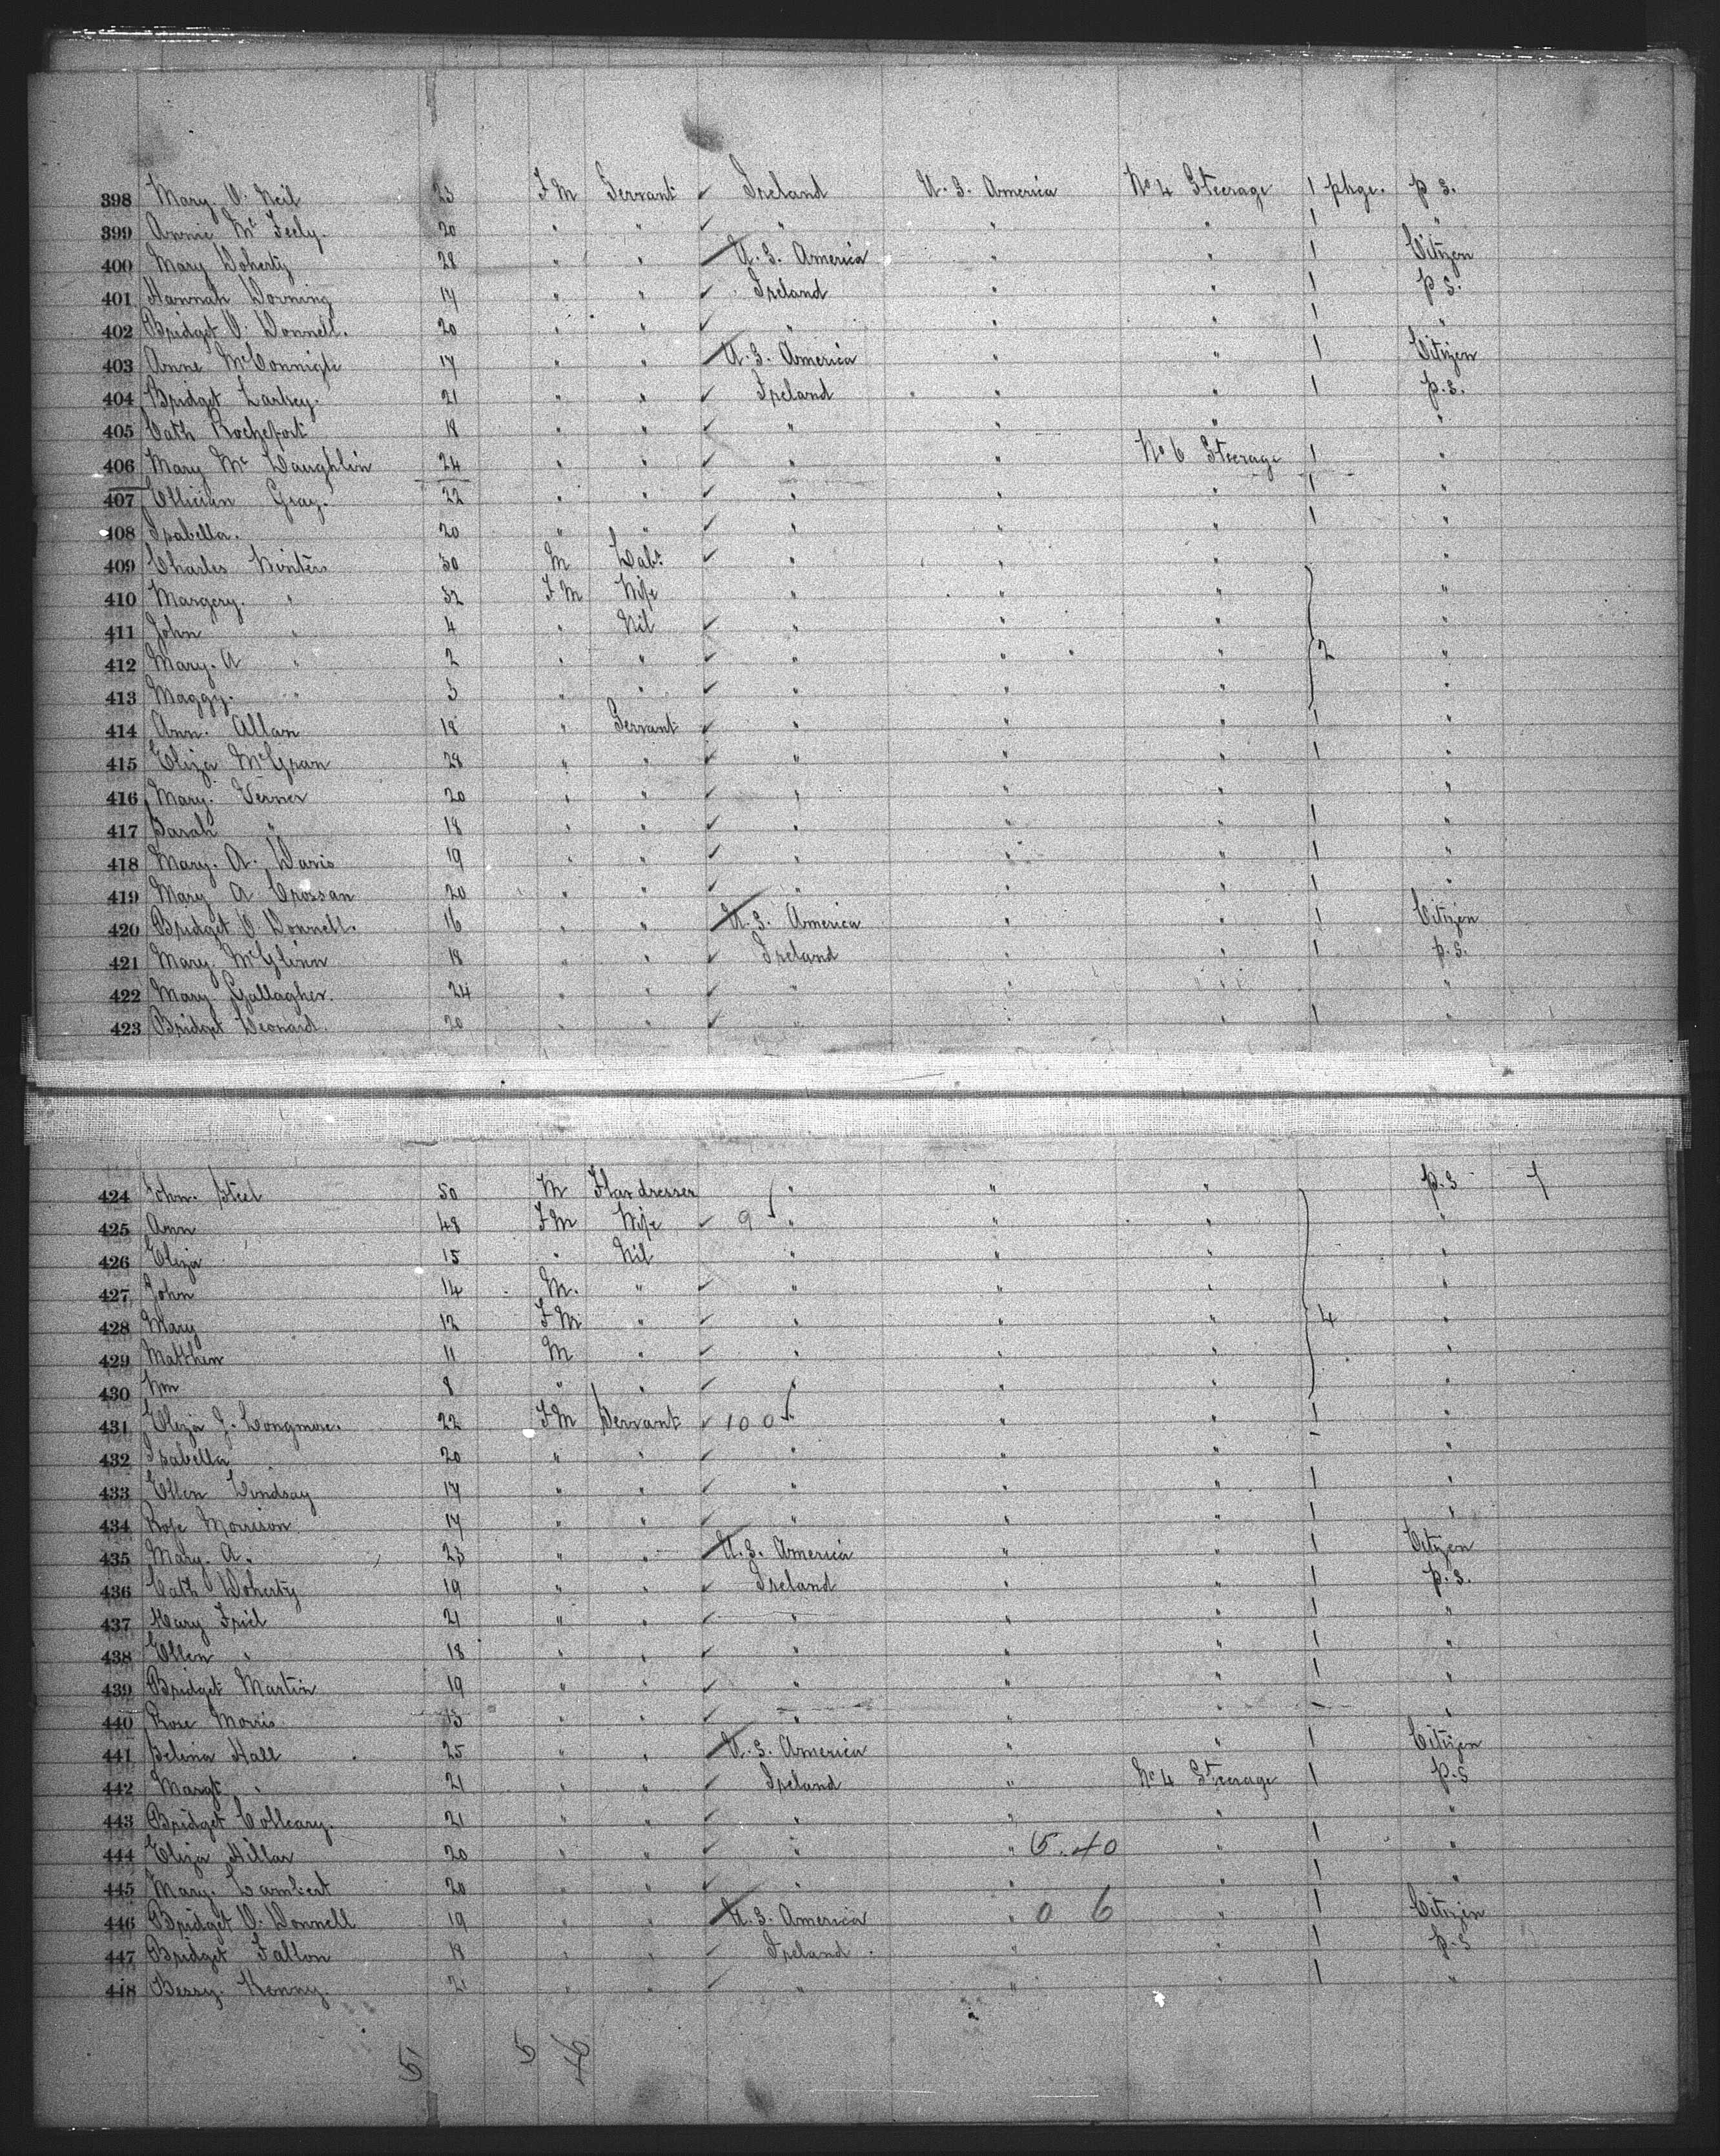 398 Mary O. Neil 23 F M Servant ✓ Ireland U. S. America No 4 Steerage 1 pkge. p s.
399 Annie Mc Feely. 20 " " ✓ " " " 1 "
400 Mary Doherty 28 " " U. S. America " " 1 Citizen
401 Hannah Dorning 17 " " ✓ Ireland " " 1 p s.
402 Bridget O. Donnell. 20 " " ✓ " " " 1 "
403 Anne McConnigle 17 " " U. S. America " " 1 Citizen
404 Bridget Larkey. 21 " " ✓ Ireland " " 1 p. s.
405 Cath Rochefort 18 " " ✓ " " " "
406 Mary Mc Laughlin 24 " " ✓ " " No 6 Steerage 1 "
407 Gray. 22 " " ✓ " " " 1 "
408 Isabella. 20 " " ✓ " " " 1 "
409 Charles Winters 30 M Labr ✓ " " " "
410 Margery. " 32 F M Wife " " " "
411 John " 4 " Nil ✓ " " " "
412 Mary. A " 2 " " ✓ " " " 2 "
413 Maggy. " 3 " " ✓ " " " "
414 Ann. Allan 18 " Servant ✓ " " " 1 "
415 Eliza McGran 28 " " ✓ " " " 1 "
416 Mary. Verner 20 " " ✓ " " " "
417 Sarah " 18 " " ✓ " " " 1 "
418 Mary. A. Davis 19 " " ✓ " " " 1 "
419 Mary A Crossan 20 " " ✓ " " " 1 "
420 Bridget O Donnell. 16 " " U. S. America " " 1 Citizen
421 Mary McGlinn 18 " " ✓ Ireland " " 1 p. s.
422 Mary Gallagher. 24 " " ✓ " " " "
423 Bridget Leonard. 20 " " ✓ " " " 1 "
424 John. Steel 50 M Flaxdresser " " " p. s
425 Ann 48 F M Wife ✓ 9 " " " "
426 Eliza 15 " Nil " " " "
427 John 14 M. " ✓ " " " "
428 Mary 12 F M " ✓ " " " 4 "
429 Matthew 11 M " ✓ " " " "
430 Wm 8 " " ✓ " " " "
431 Eliza J. Longmore. 22 F M Servant ✓ 100 " " " 1 "
432 Isabella 20 " " ✓ " " " - "
433 Ellen Lindsay 17 " " ✓ " " " 1 "
434 Rose Morrison 17 " " ✓ " " " 1 "
435 Mary. A. " 23 " " U. S. America " " 1 Citizen
436 Cath Doherty 19 " " ✓ Ireland " " 1 p. s.
437 Mary Friel 21 " " ✓ " " " 1 "
438 Ellen " 18 " " ✓ " " " 1 "
439 Bridget Martin 19 " " ✓ " " " 1 "
440 Rose Morris 13 " " ✓ " " " - "
441 Selena Hall 25 " " U. S. America " " 1 Citizen
442 Margt " 21 " " ✓ Ireland " No 4 Steerage 1 p. s
443 Bridget Colleary. 21 " " ✓ " " " "
444 Eliza Hillar 20 " " ✓ " " 5.40 " 1 "
445 Mary. Lambert 20 " " ✓ " " " 1 "
446 Bridget O. Donnell 19 " " U. S. America " 0 6 " 1 Citizen
447 Bridget Fallon 18 " " ✓ Ireland " " 1 p. s
448 Bessy. Kenny. 21 " " ✓ " " " 1 "
5 5 46